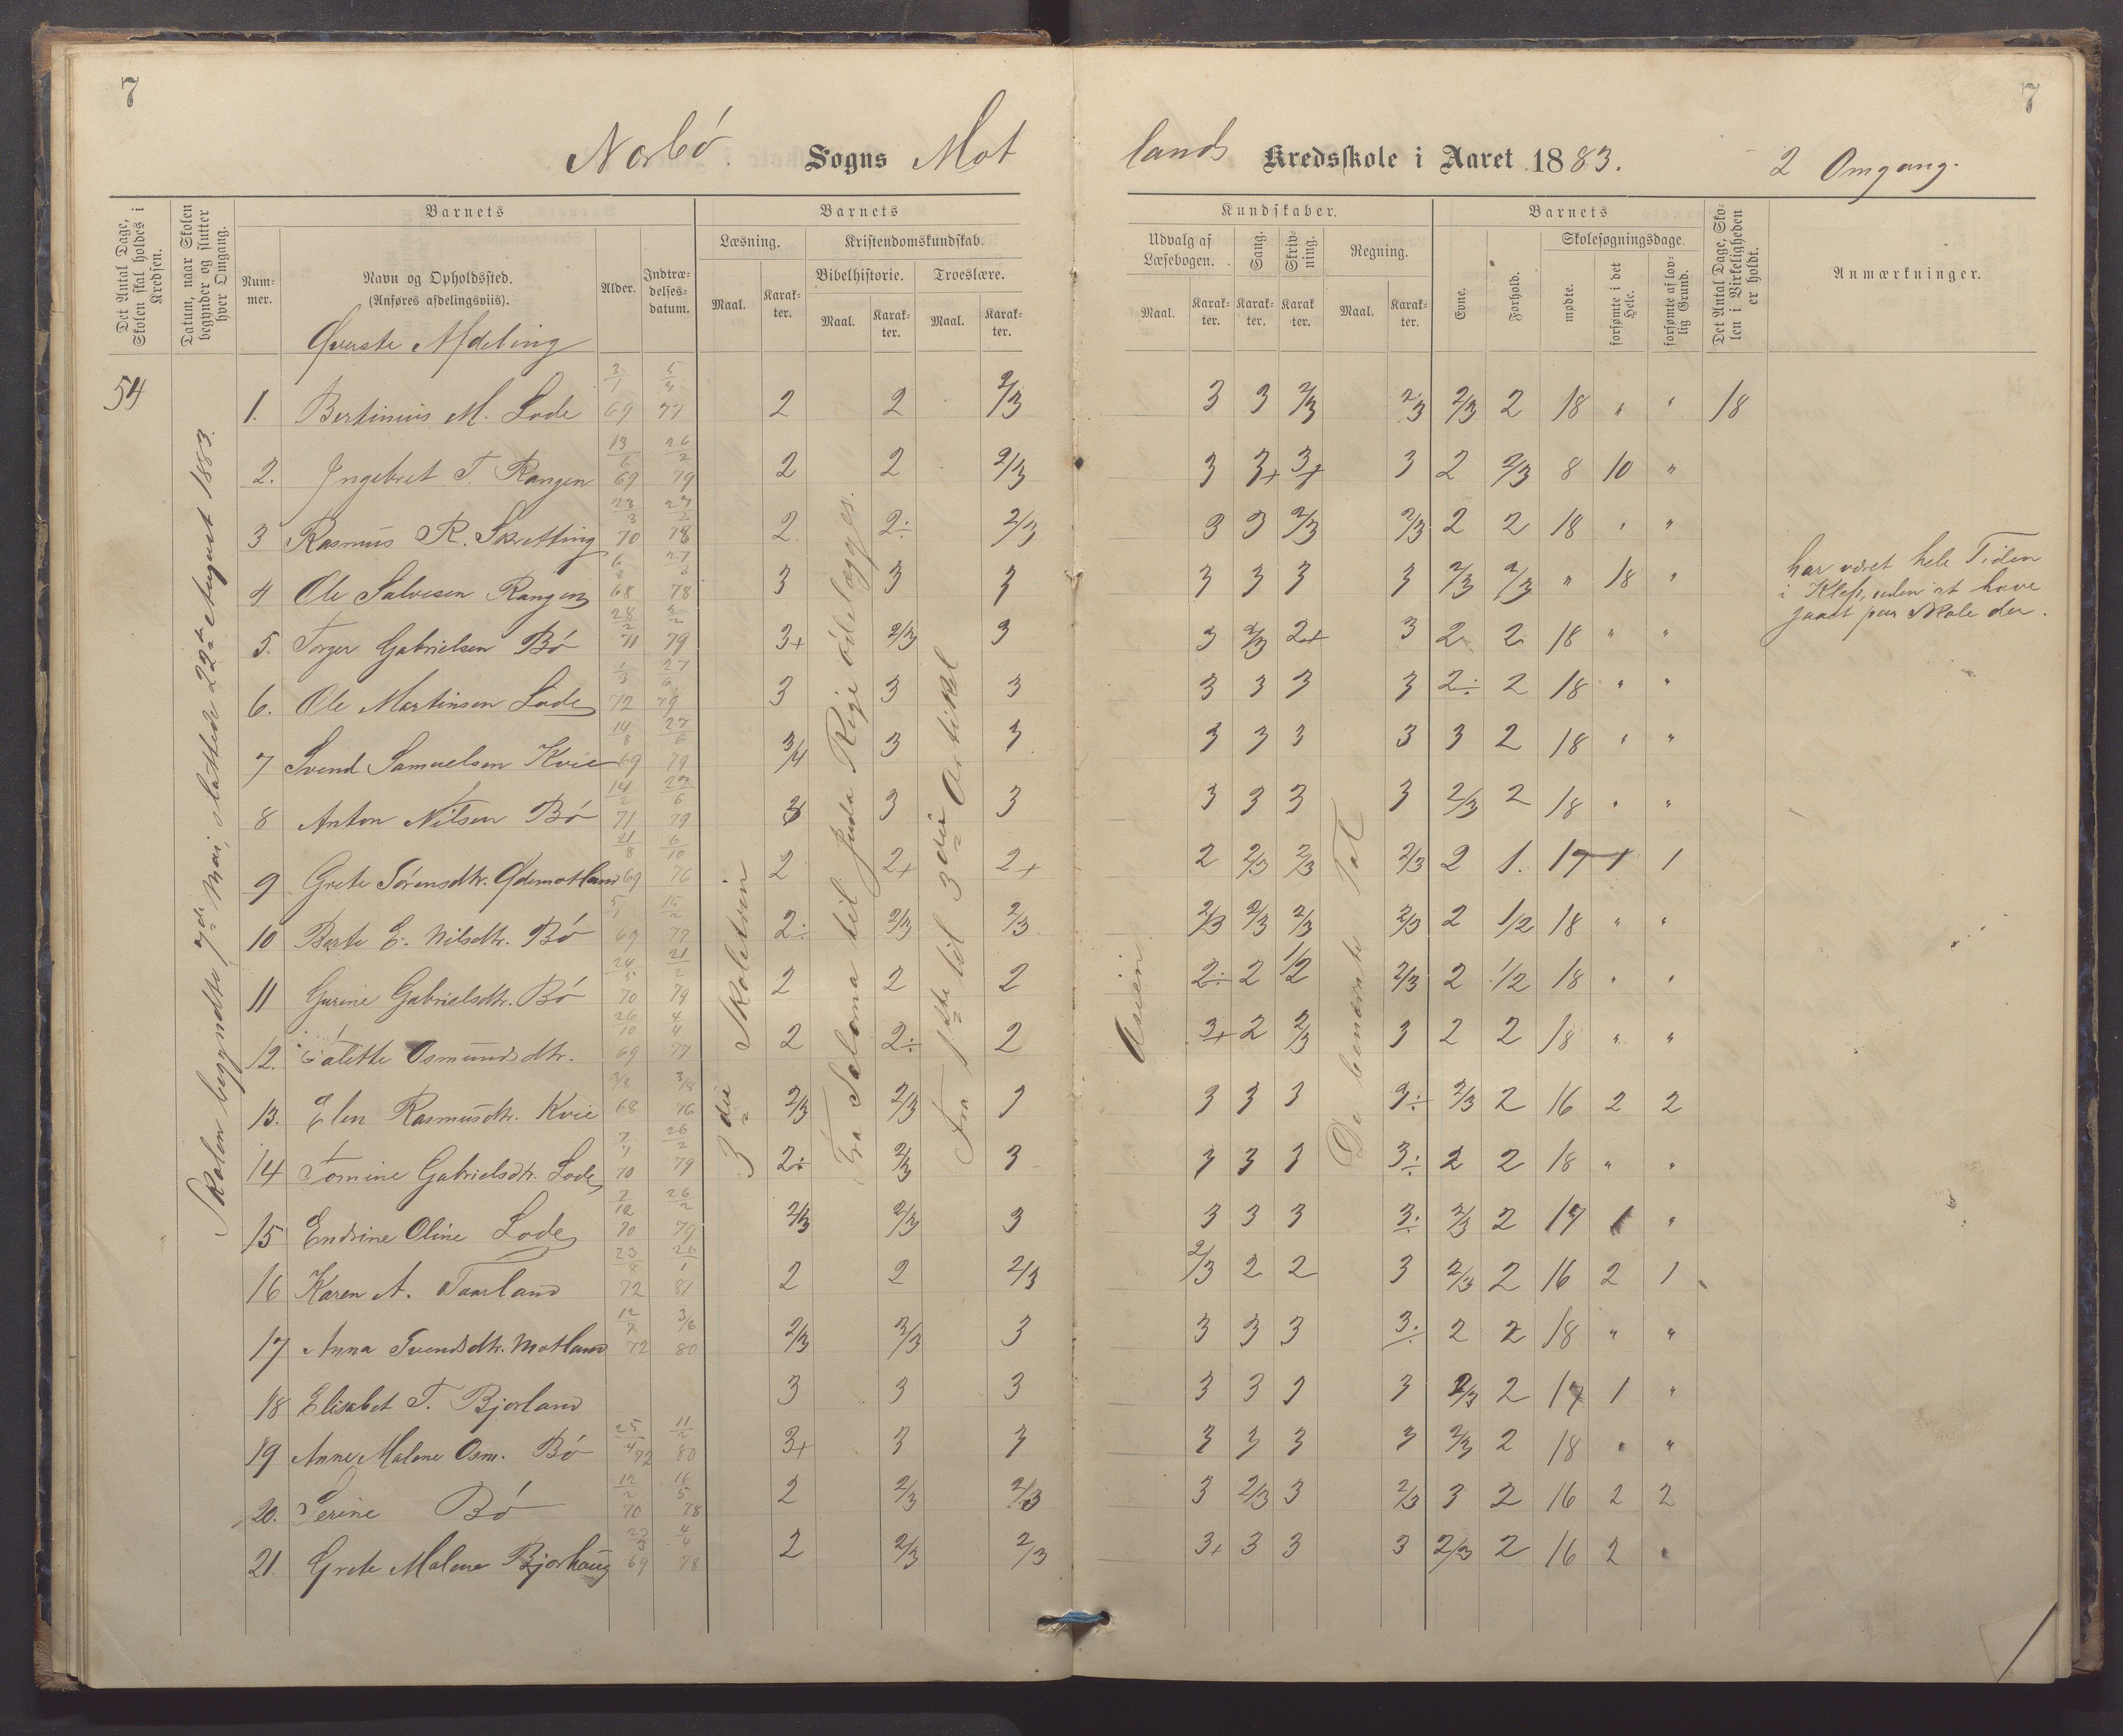 7
7
Norbø. Sogns Motlands Kredsskole i Aaret 1883. 2 Omgang.
Det Antal Dage, Skolen skal holdes i Kredsen.
Datum, naar Skolen begynder og slutter hver Omgang.
Barnets
Nummer.
Navn og Opholdssted.
(Anføres afdelingsviis).
Alder.
Indtrædelsesdatum.
Barnets
Læsning.
Maal.
Karakter.
Kristendomskundskab.
Bibelhistorie.
Maal.
Karakter.
Troeslære.
Maal.
Karakter.
Kundskaber.
Udvalg af Læsebogen.
Maal.
Karakter.
Sang.
Karakter.
Skrivning.
Karakter.
Regning.
Maal.
Karakter.
Barnets
Evne.
Forhold.
Skolesøgningsdage.
mødte.
forsømte i det Hele.
forsømte af lovlig Grund.
Det Antal Dage, Skolen i Virkeligheden er holdt.
Anmærkninger.
Øverste Afdeling
54
Skolen begyndte 7de Mai, sluttede 22de August 1883.
3die Skoletrin
Fra Salomo til Juda Rige ødelægges.
Fra 1ste til 3die Artikel
Asien
De benævnte Tal
1. Bertinius M. Lode 3/1 69 5/3 77 2 2 2/3 3 3 2/3 2/3 2/3 2 18 " " 18
2. Ingebret T. Rangen 13/6 69 26/2 79 2 2 2/3 3 3+ 3+ 3 2 2/3 8 10 "
3 Rasmus R. Skretting 23/3 70 27/2 78 2 2÷ 2/3 3 3 2/3 2/3 2 2 18 " "
4 Ole Salvesen Rangen 6/8 68 27/3 78 3 3 3 3 3 3 3 2/3 2/3 " 18 "
har været hele Tiden
i Klep, uden at have
gaaet paa Skole der.
5. Torger Gabrielsen Bø 28/2 71 5/2 79 3+ 2/3 3 3 2/3 2+ 3 2 2 18 " "
6. Ole Martinsen Lode 1/3 72 27/6 79 3 3 3 3 3 3 3 2÷ 2 18 " "
7 Svend Samuelsen Kvie 14/8 69 27/6 79 3/4 3 3 3 3 3 3 3 2 18 " "
8 Anton Nilsen Bø 14/2 71 27/6 79 3 3 3 3 3 3 3 2/3 2 18 " "
9 Grete Sørensdtr. Ødemotland 21/8 69 6/10 76 2 2+ 2+ 2 2/3 2/3 2/3 2 1. 17 1 1
10 Berte E. Nilsdtr. Bø 5/1 69 15/2 77 2÷ 2/3 2/3 2/3 2/3 2/3 2/3 2 1/2 18 " "
11 Gurine Gabrielsdtr. Bø 24/5 70 21/2 79 2 2 2 2÷ 2 1/2 2/3 2 1/2 18 " "
12. Talette Osmundsdtr. 26/10 69 4/4 77 2 2÷ 2 3+ 2 2/3 3 2 2 18 " "
13. Elen Rasmusdtr. Kvie 3/8 68 3/8 76 2/3 2/3 3 3 3 3 3÷ 2/3 2 16 2 2
14 Tomine Gabrielsdtr. Lode 7/7 70 26/2 79 2÷ 2/3 3 3 3 3 3÷ 2 2 18 " "
15 Endrine Oline Lode 7/12 70 26/2 79 2/3 2/3 3 3 3 3 3÷ 2/3 2 17 1 "
16 Karen A. Taarland 23/8 72 26/1 81 2 2 2/3 2/3 2 2 3 2/3 2 16 2 1
17 Anna Svendsdtr. Motland 12/7 72 3/6 80 2/3 2/3 3 3 3 3 3÷ 2 2 18 " "
18 Elisabet T. Bjorland 3 3 3 3 3 3 3 2/3 2 17 1 "
19 Anne Malene Osm. Bø 25/4 72 11/2 80 3+ 3 3 3 3 3 3 2/3 2 18 " "
20. Serine Bø 12/2 70 16/5 78 2 2/3 2/3 3 2/3 3 2/3 3 2 16 2 2
21. Grete Malene Bjorhaug 23/3 69 4/4 78 2 2/3 2/3 3+ 3 3 3 2/3 2 16 2 "